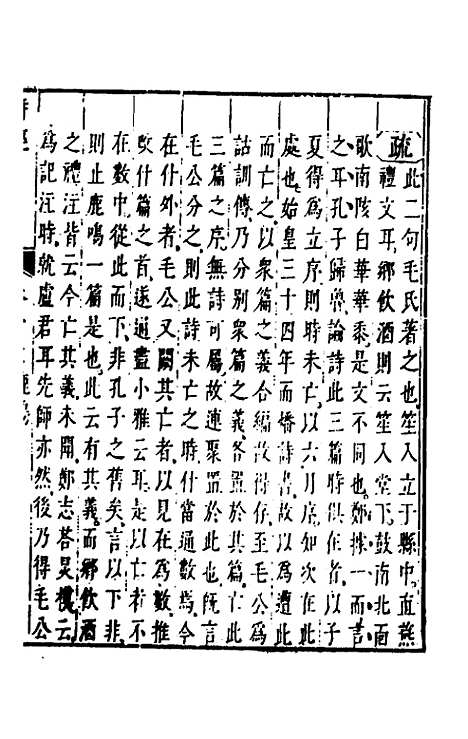 疏此二句毛氏著之也笙入立于縣中直燕
禮文耳鄉飲酒則云笙入堂下鼓南北面
歌南陔白華華黍是文不同也鄭據一而言
之耳孔子歸魯論詩此三篇時俱在者以子
夏得為立序則時未亡以六月序如次在此
處也始皇三十四年而燔詩書故以為遭此
而亡之以眾篇之義合編故得存至毛公為
詁訓傳乃分別眾篇之義各置於其篇亡此
三篇之序無詩可屬故連聚置於此也既言
毛公分之則此詩未亡之時什當通數焉今
在什外者毛公又闕其亡者以見在為數推
改什篇之首遂通盡小雅云耳是以亡者不
在數中從此而下非孔子之舊矣言以下非
則止鹿鳴一篇是也此云有其義而鄉飲酒
之禮注皆云今亡其義未聞鄭志荅炅模云
為記注時就盧君耳先師亦然後乃得毛公